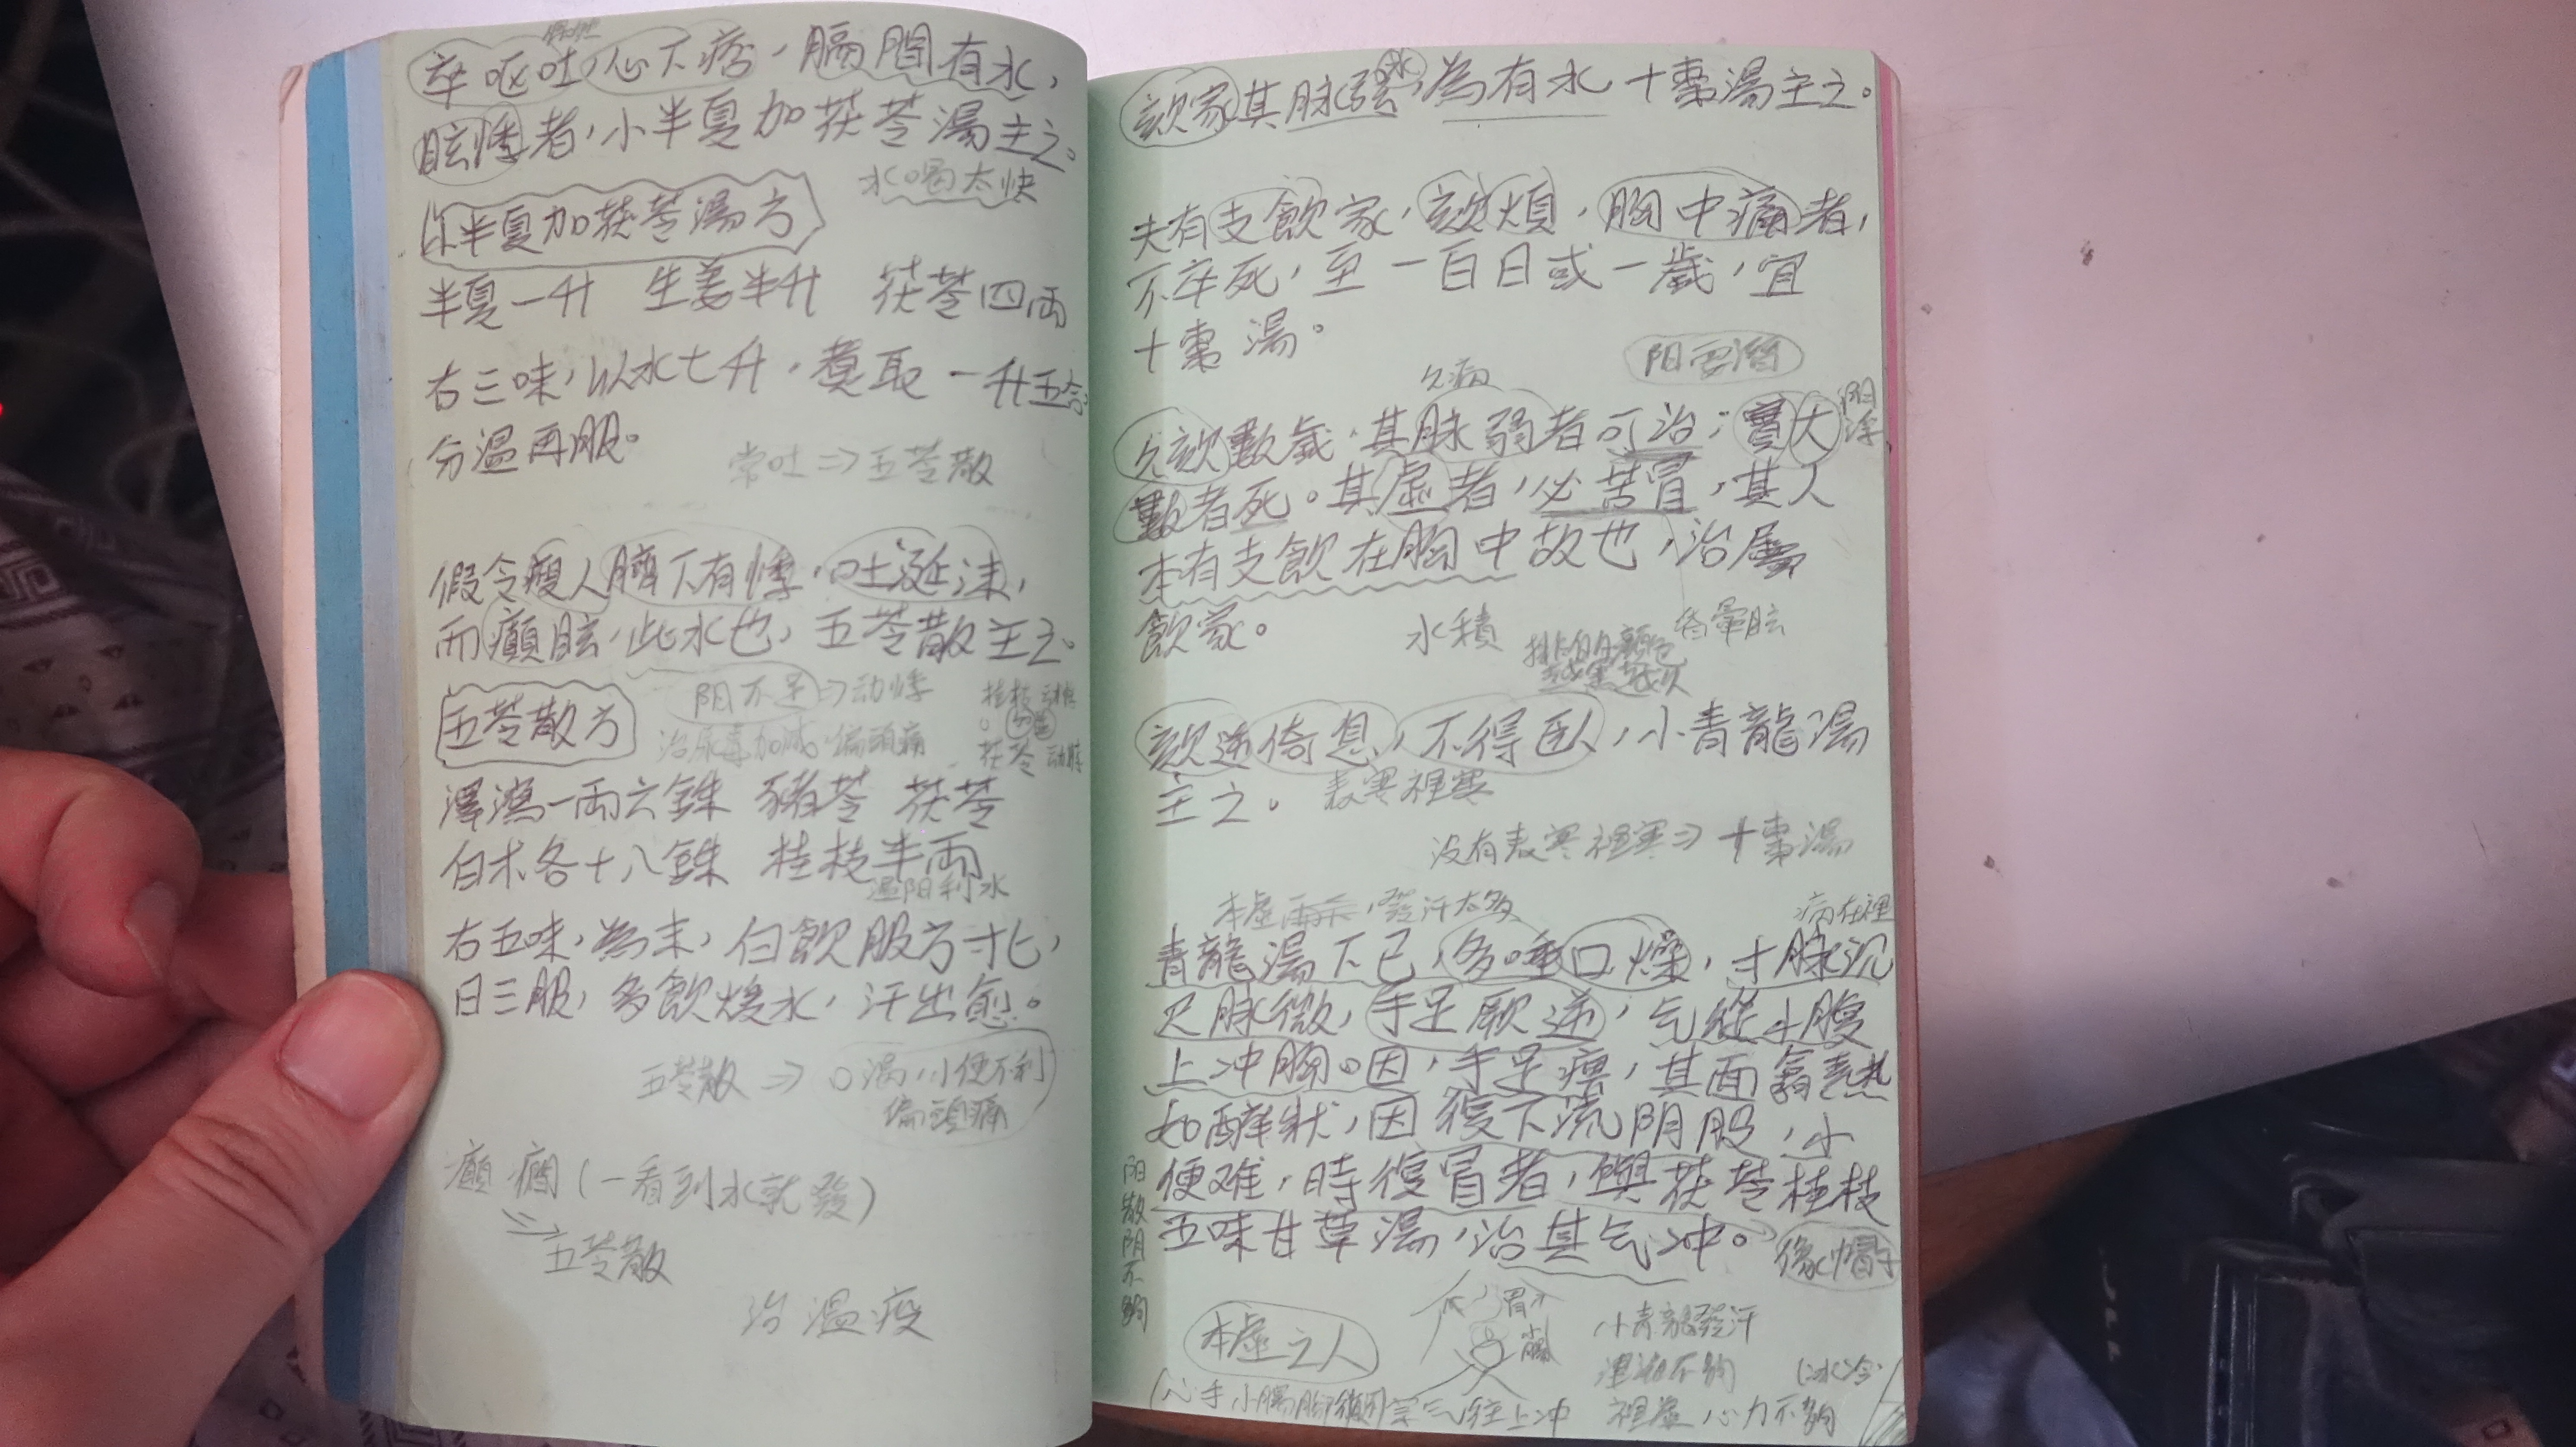 卒呕吐,心下痞,膈間有水,
眩悸者,小半夏加茯苓湯主之。
水喝太快
小半夏加茯苓湯方
半夏一升 生姜半升 茯苓四両
右三味,以水七升,煮取一升五合
分温再服。
常吐⇒五苓散
假令瘦人臍下有悸,吐涎沫,
而癲眩,此水也,五苓散主之。
阳不足⇒动悸
五苓散方
治尿毒加减。偏頭痛
桂枝
茯苓 动悸
澤瀉一両六銖 豬苓 茯苓
白朮各十八銖 桂枝半両
温阳利水
右五味,為末,白飲服方寸匕,
日三服,多飲煖水,汗出愈。
五苓散⇒口渴,小便不利
偏頭痛
癲癇(一看到水就發)
⇒五苓散
治温疫
水
咳家其脉弦,為有水十棗湯主之。
夫有支飲家,咳煩,胸中痛者,
不卒死,至一百日或一歲,宜
十棗湯。
久病
久咳數歲,其脉弱者可治;實大
數者死。其虛者,必苦冒,其人
本有支飲在胸中故也,治屬
飲家。
水積
暈眩
咳逆倚息,不得臥,小青龍湯
主之。
表寒裡寒
没有表寒裡寒⇒十棗湯
發汗太多
病在裡
青龍湯下已,多唾口燥,寸脉沉
尺脉微,手足厥逆,气從小腹
上冲胸。因,手足痹,其面翕熱
如醉狀,因復下流阴股,小
便难,時復冒者,與茯苓桂枝
五味甘草湯,治其气冲。
像帽子
阳散阴不夠
本虛之人
胃
小腸
小青龍發汗
津液不夠
(冰冷)
气往上冲
裡虛,心力不夠